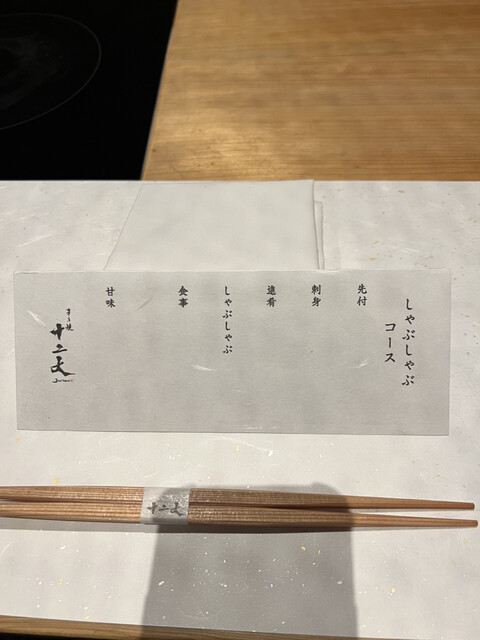 しゃぶしゃぶ
コース
先付
刺身
進肴
しゃぶしゃぶ
食事
甘味
十二天
十二天